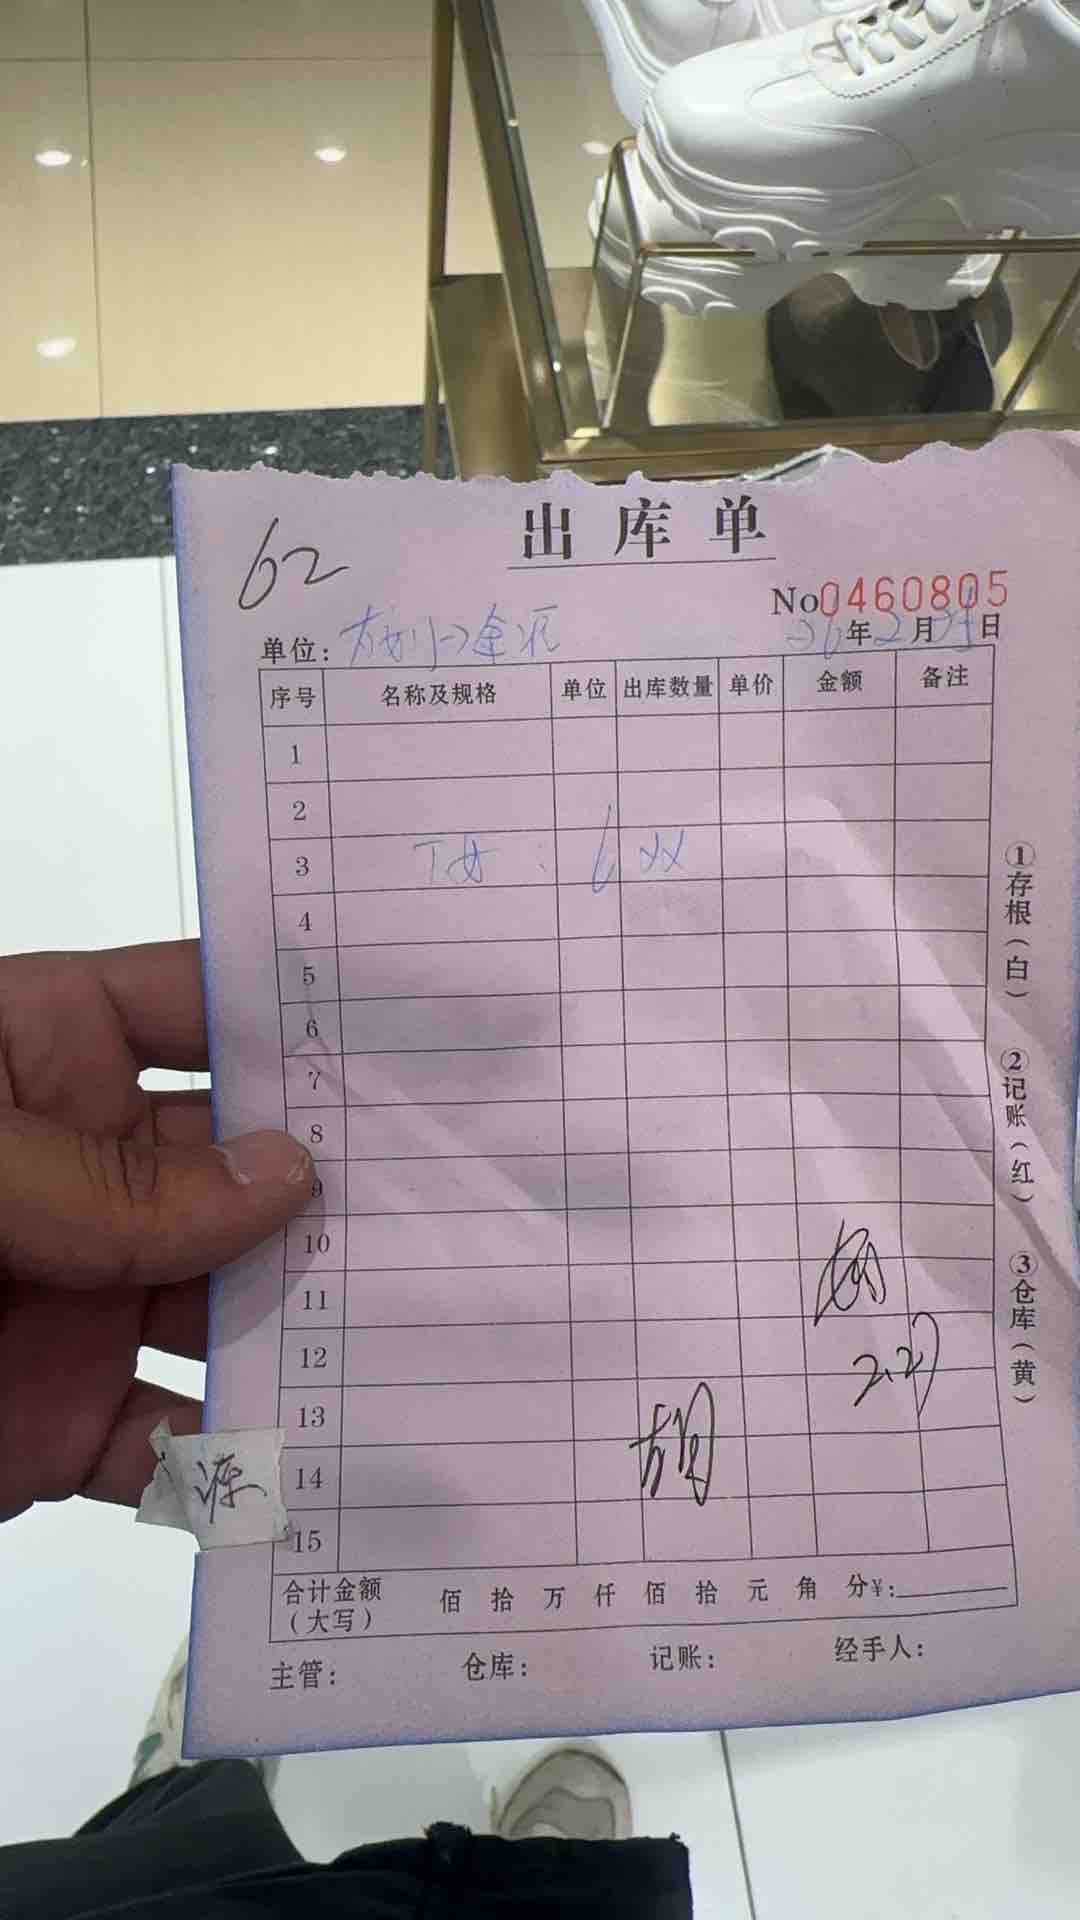 出库单
62
No0460805
单位：
26年2月 日
序号 名称及规格 单位 出库数量 单价 金额 备注
1
2
3 丁女：6双
4
5
6
7
8
9
10
11
12
2.27
13
胡
14
源
15
合计金额（大写） 佰 拾 万 仟 佰 拾 元 角 分¥:
主管： 仓库： 记账： 经手人：
①存根（白）
②记账（红）
③仓库（黄）